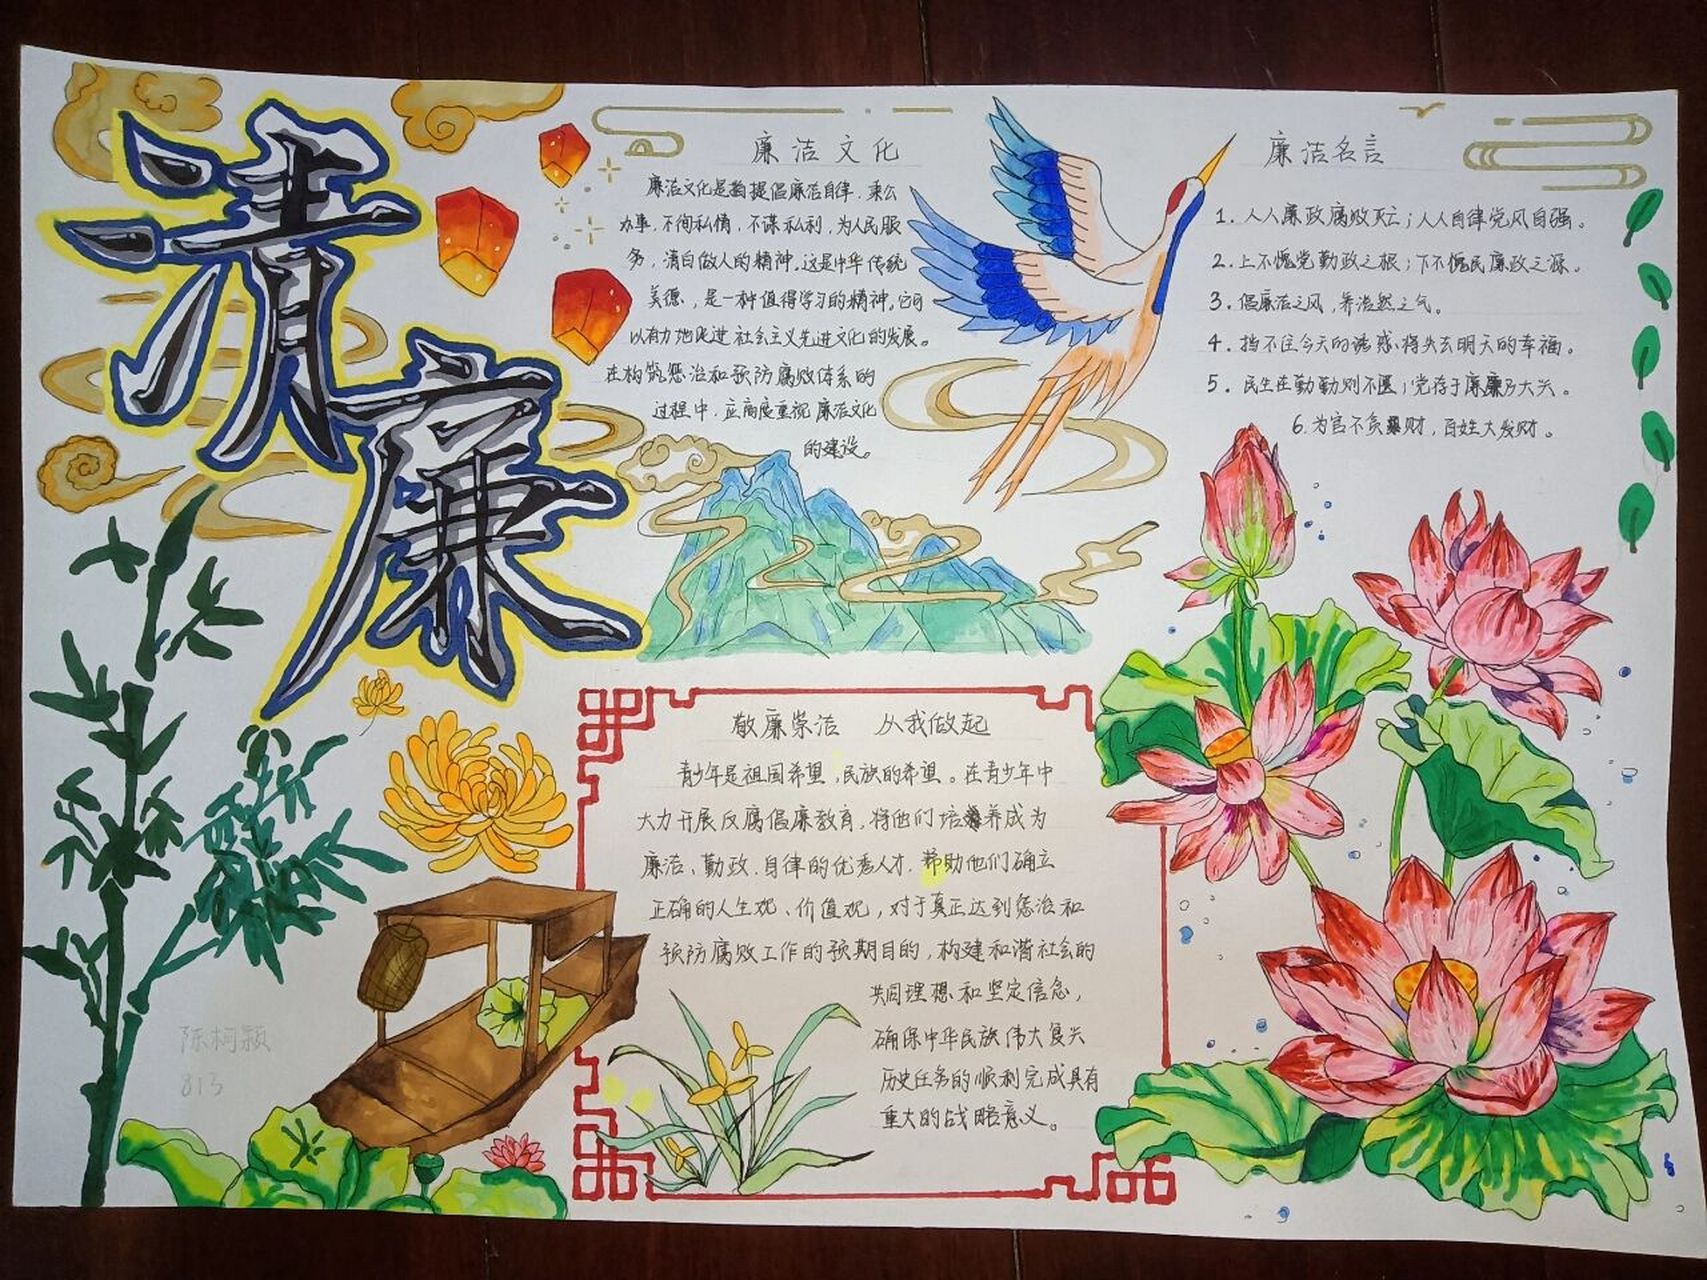 清廉
廉洁文化
廉洁文化是指提倡廉洁自律、秉公
办事,不徇私情,不谋私利,为人民服
务,清白做人的精神。这是中华传统
美德,是一种值得学习的精神。它可
以有力地促进社会主义先进文化的发展。
在构筑惩治和预防腐败体系的
过程中,应高度重视廉洁文化
的建设。
廉洁名言
1. 人人廉政腐败灭亡;人人自律党风自强。
2. 上不愧党勤政之根;下不愧民廉政之源。
3. 倡廉洁之风,养浩然之气。
4. 挡不住今天的诱惑,将失去明天的幸福。
5. 民生在勤勤则不匮;党存于廉廉乃大兴。
6. 为官不贪财,百姓大发财。
敬廉崇洁 从我做起
青少年是祖国希望,民族的希望。在青少年中
大力开展反腐倡廉教育,将他们培养成为
廉洁、勤政、自律的优秀人才,帮助他们确立
正确的人生观、价值观,对于真正达到惩治和
预防腐败工作的预期目的,构建和谐社会的
共同理想和坚定信念,
确保中华民族伟大复兴
历史任务的顺利完成具有
重大的战略意义。
陈柯颖
813